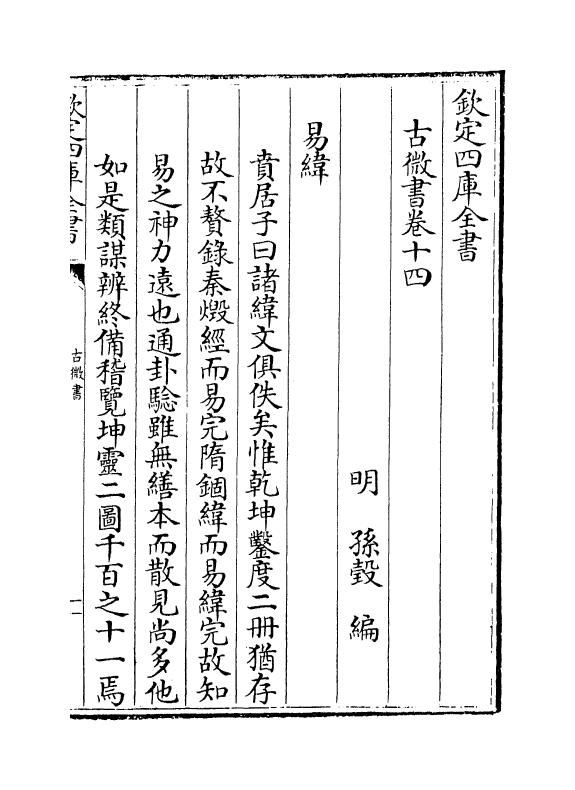 欽定四庫全書
古微書卷十四
明 孫瑴 編
易緯
賁居子曰諸緯文俱佚矣惟乾坤鑿度二冊猶存
故不贅錄秦燬經而易完隋錮緯而易緯完故知
易之神力遠也通卦驗雖無繕本而散見尚多他
如是類謀辨終備稽覽坤靈二圖千百之十一焉
欽定四庫全書
古微書
一